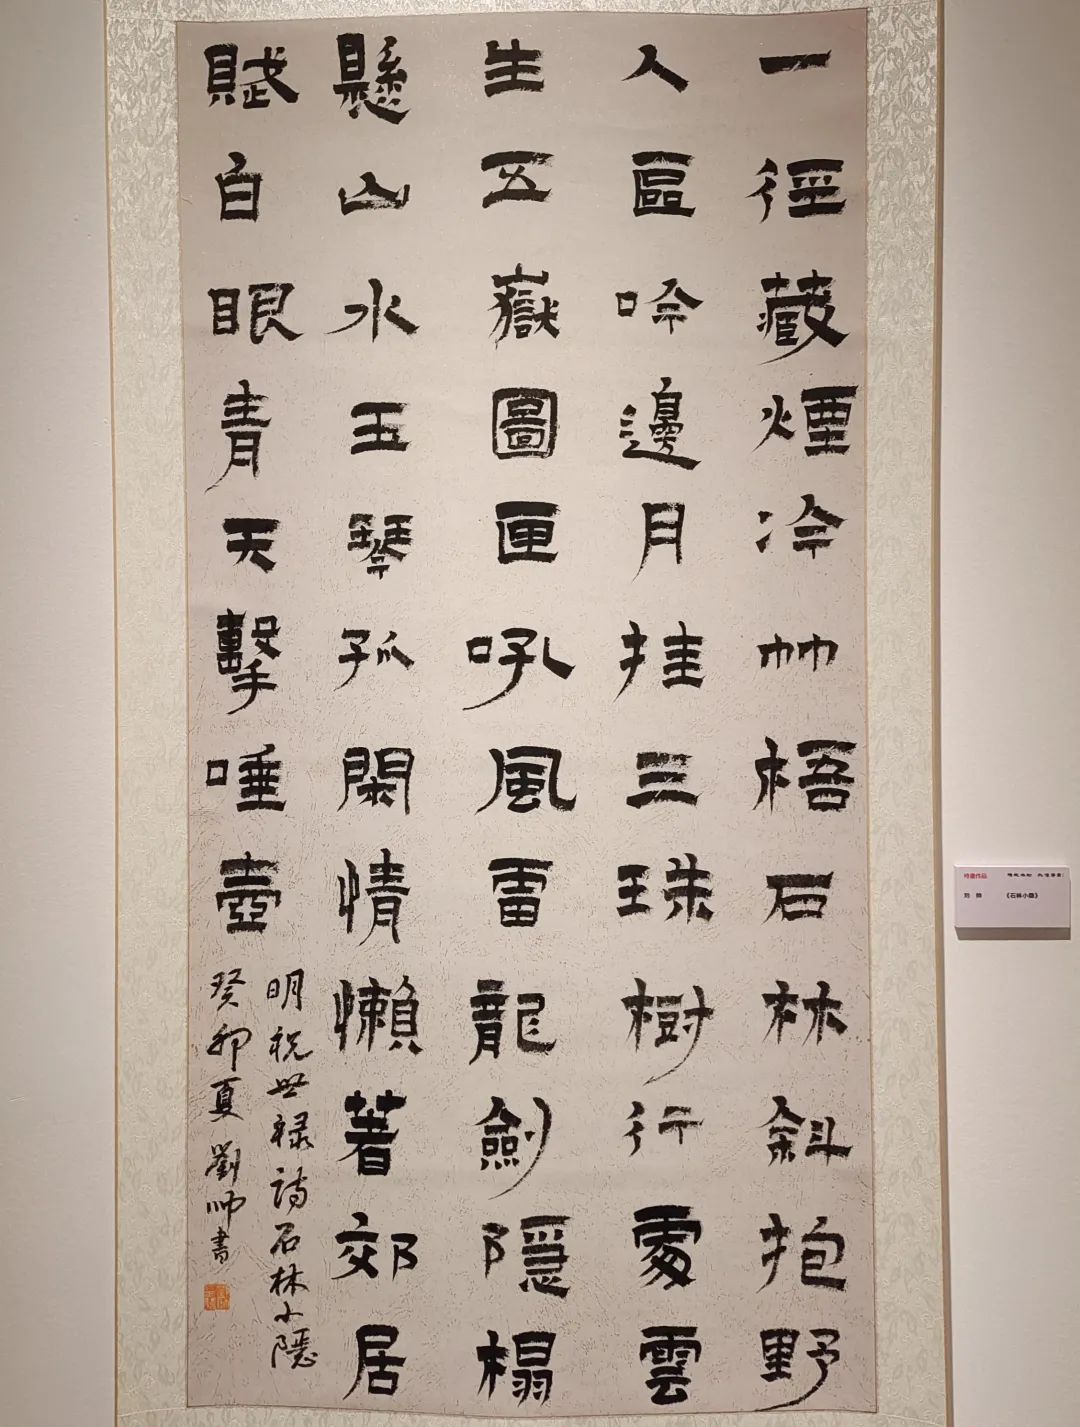 一徑藏煙冷竹梧石林斜抱野
人區吟邊月挂三珠樹行處雲
生五嶽圖匣吼風雷龍劍隱榻
懸山水玉琴孤閑情懶著郊居
賦白眼青天擊唾壺
明祝世禄詩石林小隱
癸卯夏劉帅書
特邀作品
刘 帅 《石林小隐》